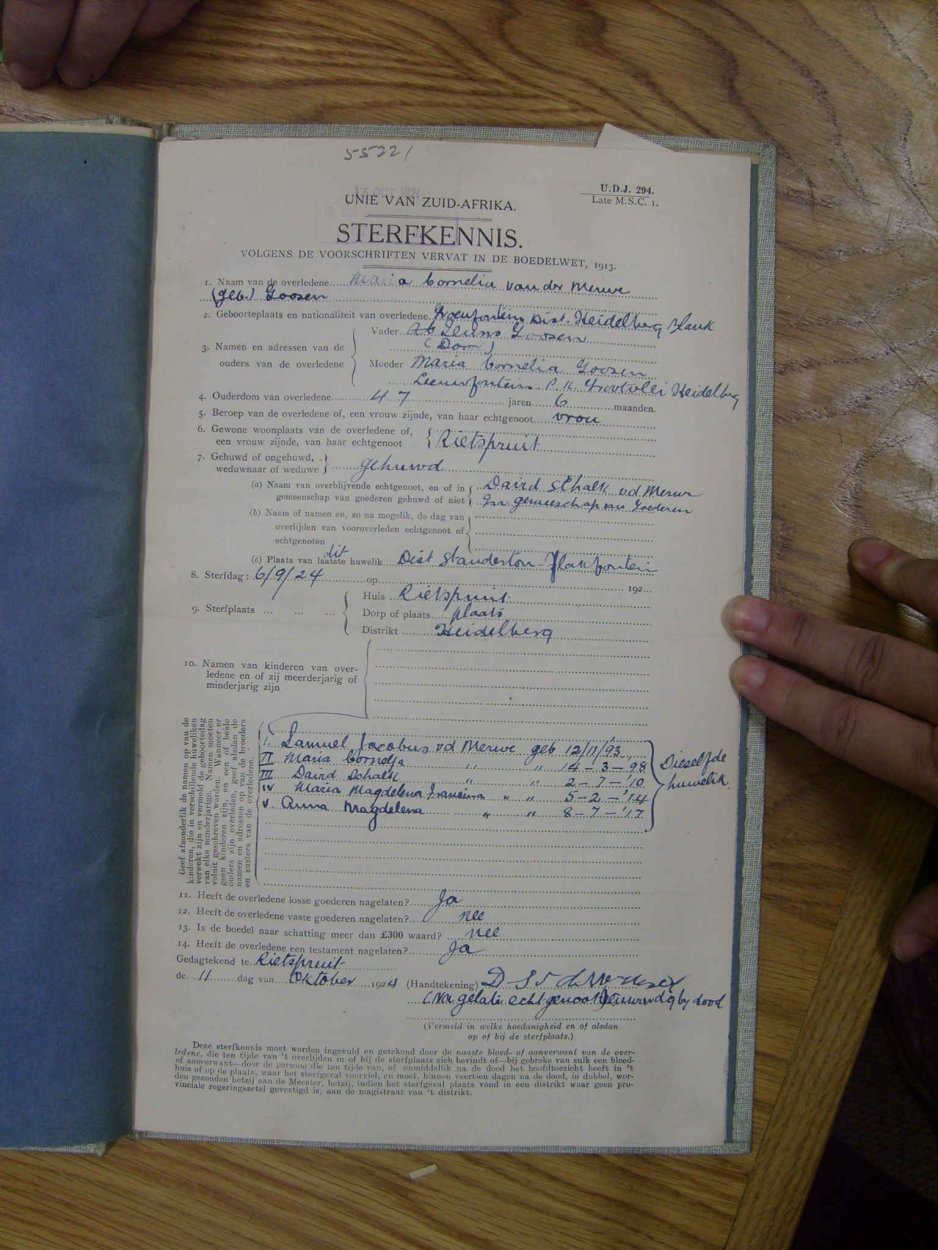 55221
U.D.J. 294.
Late M.S.C. 1.
UNIE VAN ZUID-AFRIKA.
STERFKENNIS.
VOLGENS DE VOORSCHRIFTEN VERVAT IN DE BOEDELWET, 1913.
1. Naam van de overledene Maria Cornelia van der Merwe
(geb.) Goosen
2. Geboorteplaats en nationaliteit van overledene Dist. Heidelberg
3. Namen en adressen van de ouders van de overledene
Vader Goosen
Moeder Maria Cornelia Goosen
Leeuwfontein P.K. Grootvlei Heidelberg
4. Ouderdom van overledene 47 jaren 6 maanden.
5. Beroep van de overledene of, een vrouw zijnde, van haar echtgenoot vrou
6. Gewone woonplaats van de overledene of,
een vrouw zijnde, van haar echtgenoot Rietspruit
7. Gehuwd of ongehuwd,
weduwnaar of weduwe gehuwd
(a) Naam van overblijvende echtgenoot, en of in David Schalk vd Merwe
gemeenschap van goederen gehuwd of niet In gemeeschap van Goederen
(b) Naam of namen en, zo na mogelik, de dag van
overlijden van vooroverleden echtgenoot of
echtgenoten
dit
(c) Plaats van laatste huwelik. Dist Standerton Vlakfontein
8. Sterfdag: 6/9/24 op 192
9. Sterfplaats ... ... ...
Huis Rietspruit
Dorp of plaats plaats
Distrikt Heidelberg
10. Namen van kinderen van over-
ledene en of zij meerderjarig of
minderjarig zijn
Geef afsonderlik de namen op van de
kinderen, die in verschillende huweliken
verwekt zijn en vermeld de geboortedag
van elke minderjarige. Namen moeten
voluit geschreven worden. Wanneer er
geen kinderen zijn, en een of beide
ouders zijn overleden, geef alsdan de
namen en adressen op van de broeders
en zusters van de overledene.
I. Samuel Jacobus vd Merwe geb 12/11/93
II Maria Cornelja " " 14-3-98
III David Schalk " " 2-7-'10
IV Maria Magdelena Francina " " 5-2-'14
V Anna Magdelena " " 8-7-'17
Dieselfde
huwelik
11. Heeft de overledene losse goederen nagelaten? Ja
12. Heeft de overledene vaste goederen nagelaten? nee
13. Is de boedel naar schatting meer dan £300 waard? nee
14. Heeft de overledene een testament nagelaten? Ja
Gedagtekend te Rietspruit
de 11 dag van Oktober 1924 (Handtekening) D S
echtgenoot by dood
(Vermeld in welke hoedanigheid en of alsdan
op of bij de sterfplaats.)
Deze sterfkennis moet worden ingevuld en getekend door de naaste bloed- of aanverwant van de over-
ledene, die ten tijde van 't overlijden in of bij de sterfplaats zich bevindt of—bij gebreke van zulk een bloed-
of aanverwant—door de persoon die ten tijde van, of onmiddellik na de dood het hoofdtoezicht heeft in 't
huis of op de plaats, waar het sterfgeval voorviel, en moet, binnen veertien dagen na de dood, in dubbel, wor-
den gezonden hetzij aan de Meester, hetzij, indien het sterfgeval plaats vond in een distrikt waar geen pro-
vinciale regeringszetel gevestigd is, aan de magistraat van 't distrikt.